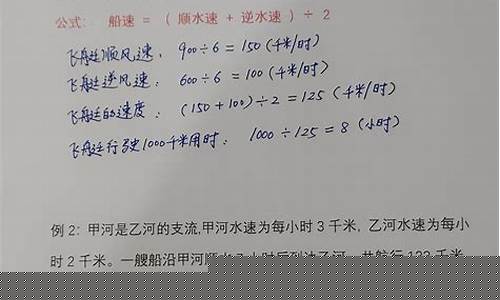 公式: 船速 = ( 顺水速 + 逆水速 ) ÷ 2
飞艇顺风速: 900÷6=150(千米/时)
飞艇逆风速: 600÷6=100(千米/时)
飞艇的速度: (150+100)÷2=125(千米/时)
飞艇行驶1000千米用时: 1000÷125=8(小时)
例 2: 甲河是乙河的支流,甲河水速为每小时 3 千米, 乙河水速为每小
时 2 千米。一艘船沿甲河顺水 7 小时后到达乙河, 共航行 133 千米